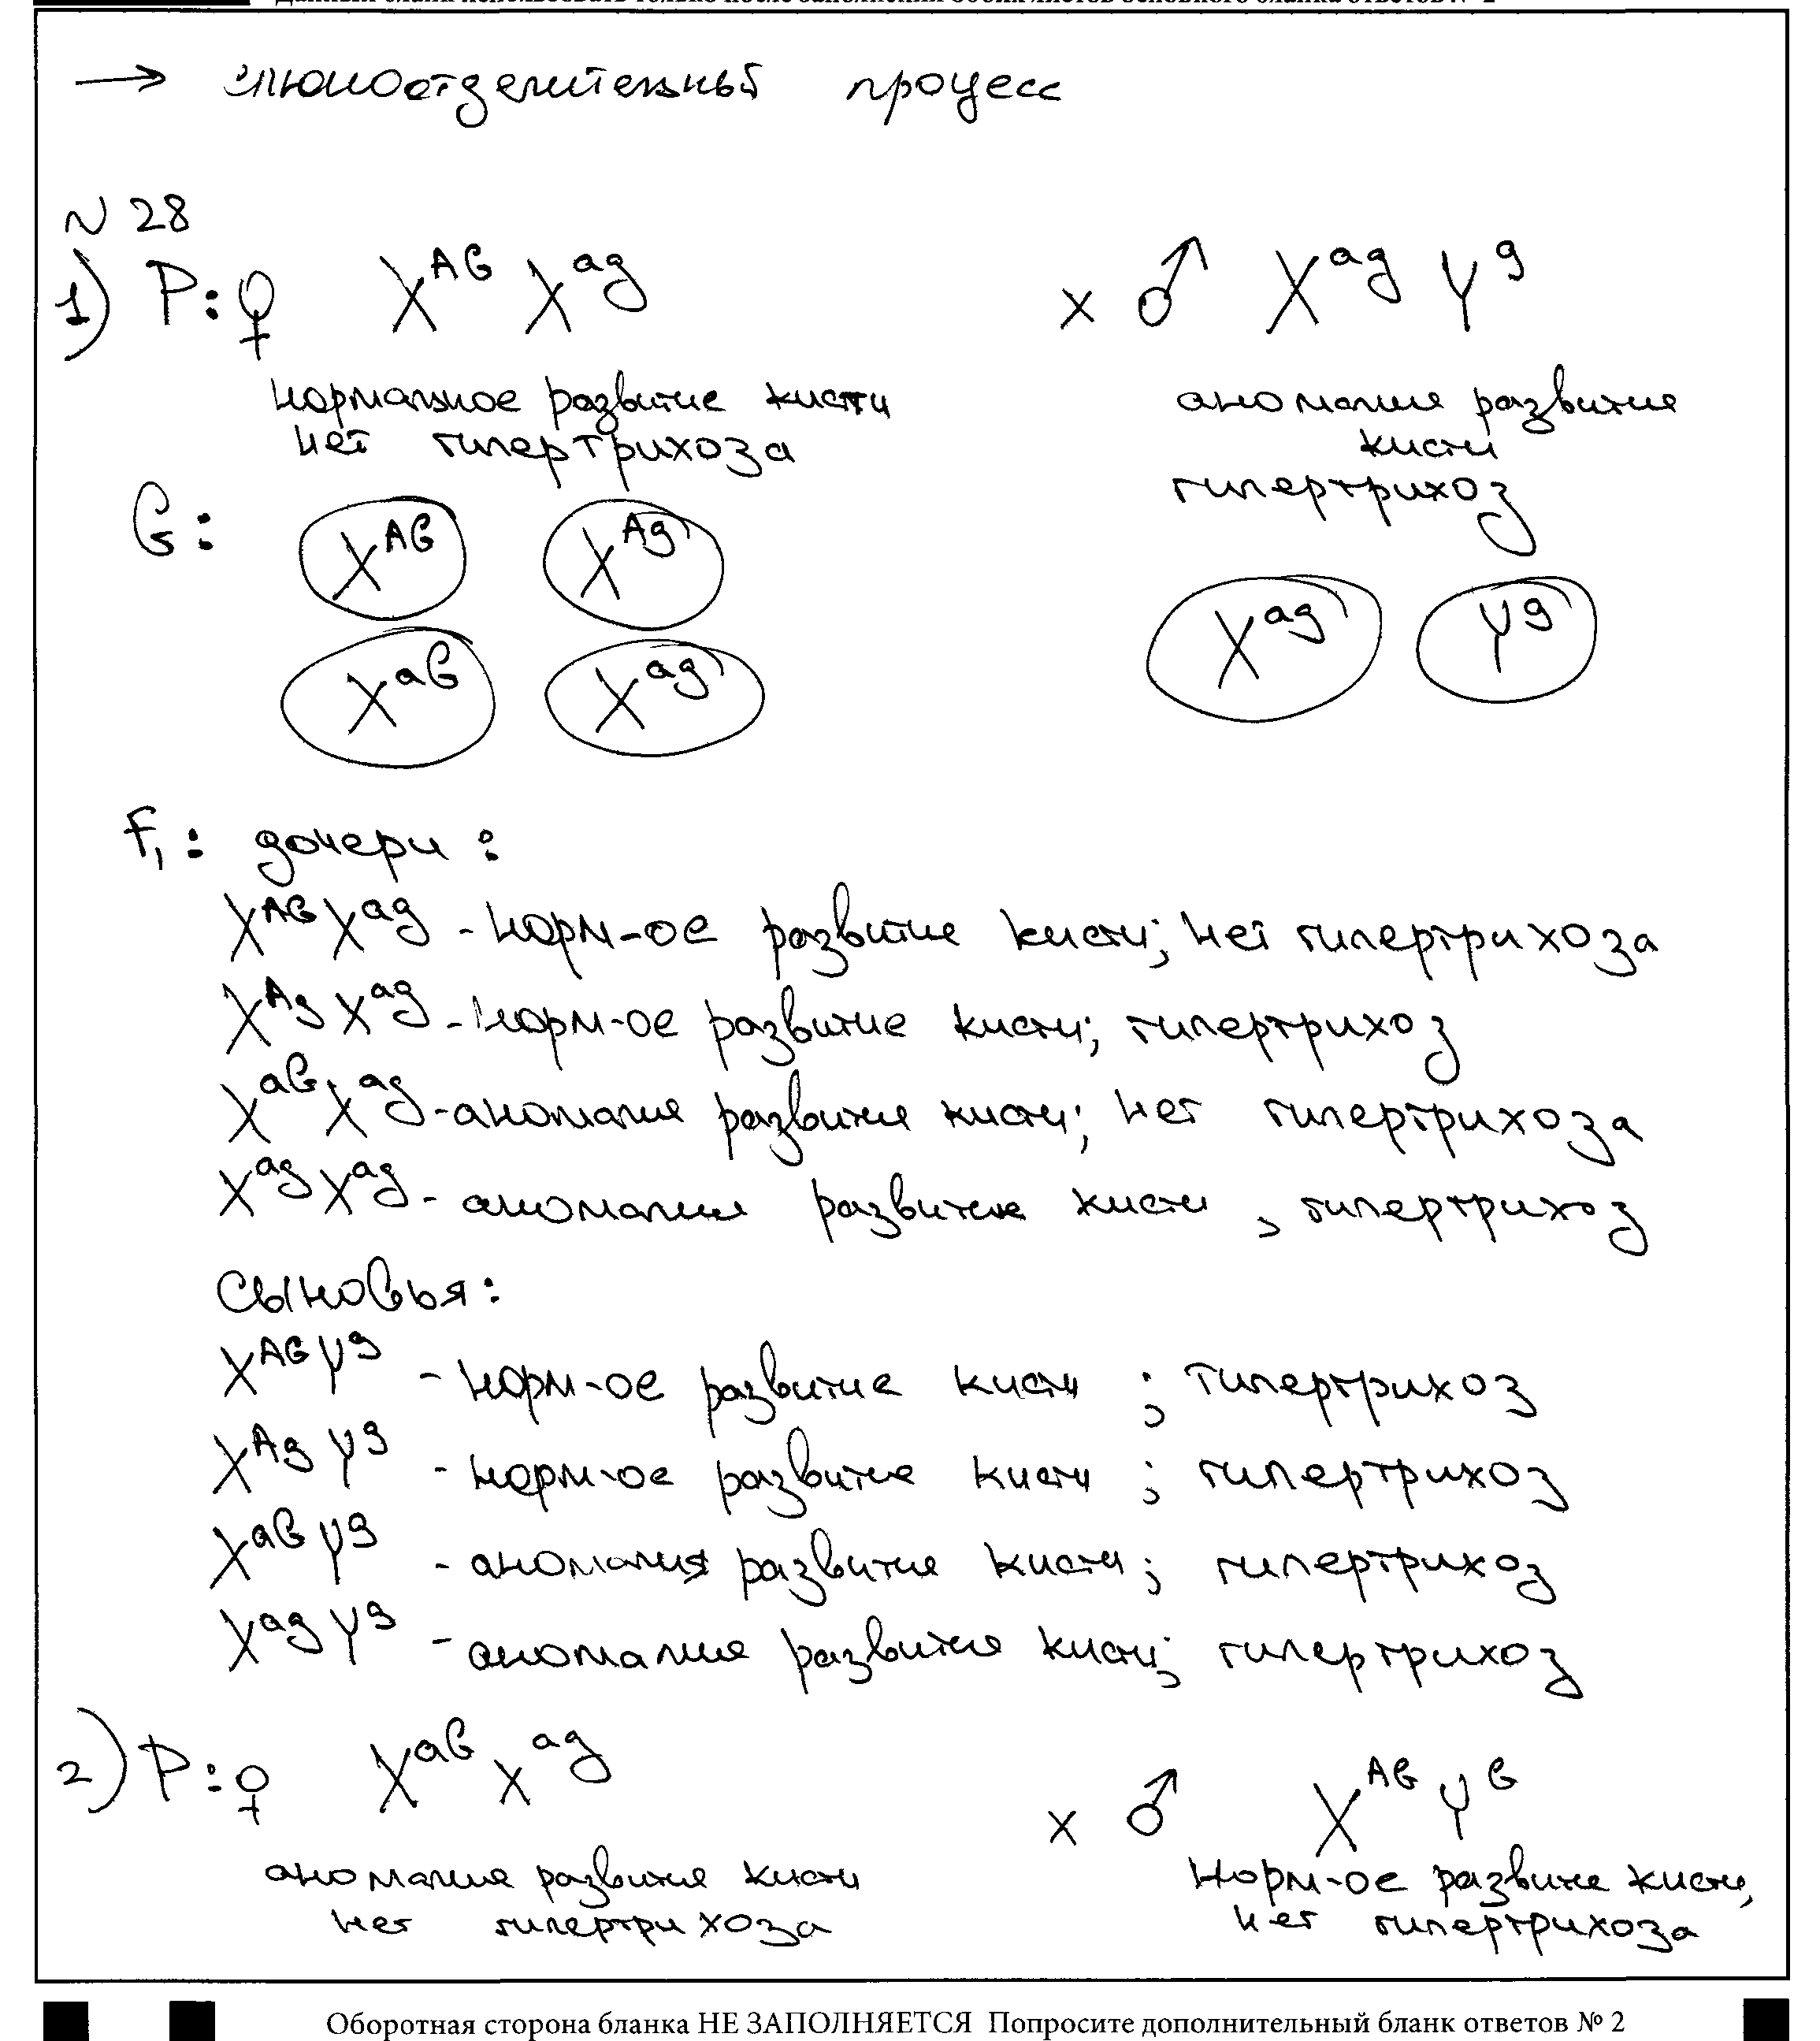 → слюноотделительный процесс
N 28
1) P: ♀ X^AB X^ag x ♂ X^ag Y^g
нормальное развитие кисти аномалия развития
нет гипертрихоза кисти
гипертрихоз
G: X^AB X^Ag X^ag Y^g
X^aB X^ag
F₁: дочери:
X^AB X^ag - норм-ое развитие кисти; нет гипертрихоза
X^Ag X^ag - норм-ое развитие кисти; гипертрихоз
X^aB X^ag - аномалия развития кисти; нет гипертрихоза
X^ag X^ag - аномалия развития кисти, гипертрихоз
Сыновья:
X^AB Y^g - норм-ое развитие кисти; гипертрихоз
X^Ag Y^g - норм-ое развитие кисти; гипертрихоз
X^aB Y^g - аномалия развития кисти; гипертрихоз
X^ag Y^g - аномалия развития кисти; гипертрихоз
2) P: ♀ X^aB X^ag x ♂ X^AB Y^B
аномалия развития кисти норм-ое развитие кисти,
нет гипертрихоза нет гипертрихоза
Оборотная сторона бланка НЕ ЗАПОЛНЯЕТСЯ Попросите дополнительный бланк ответов № 2